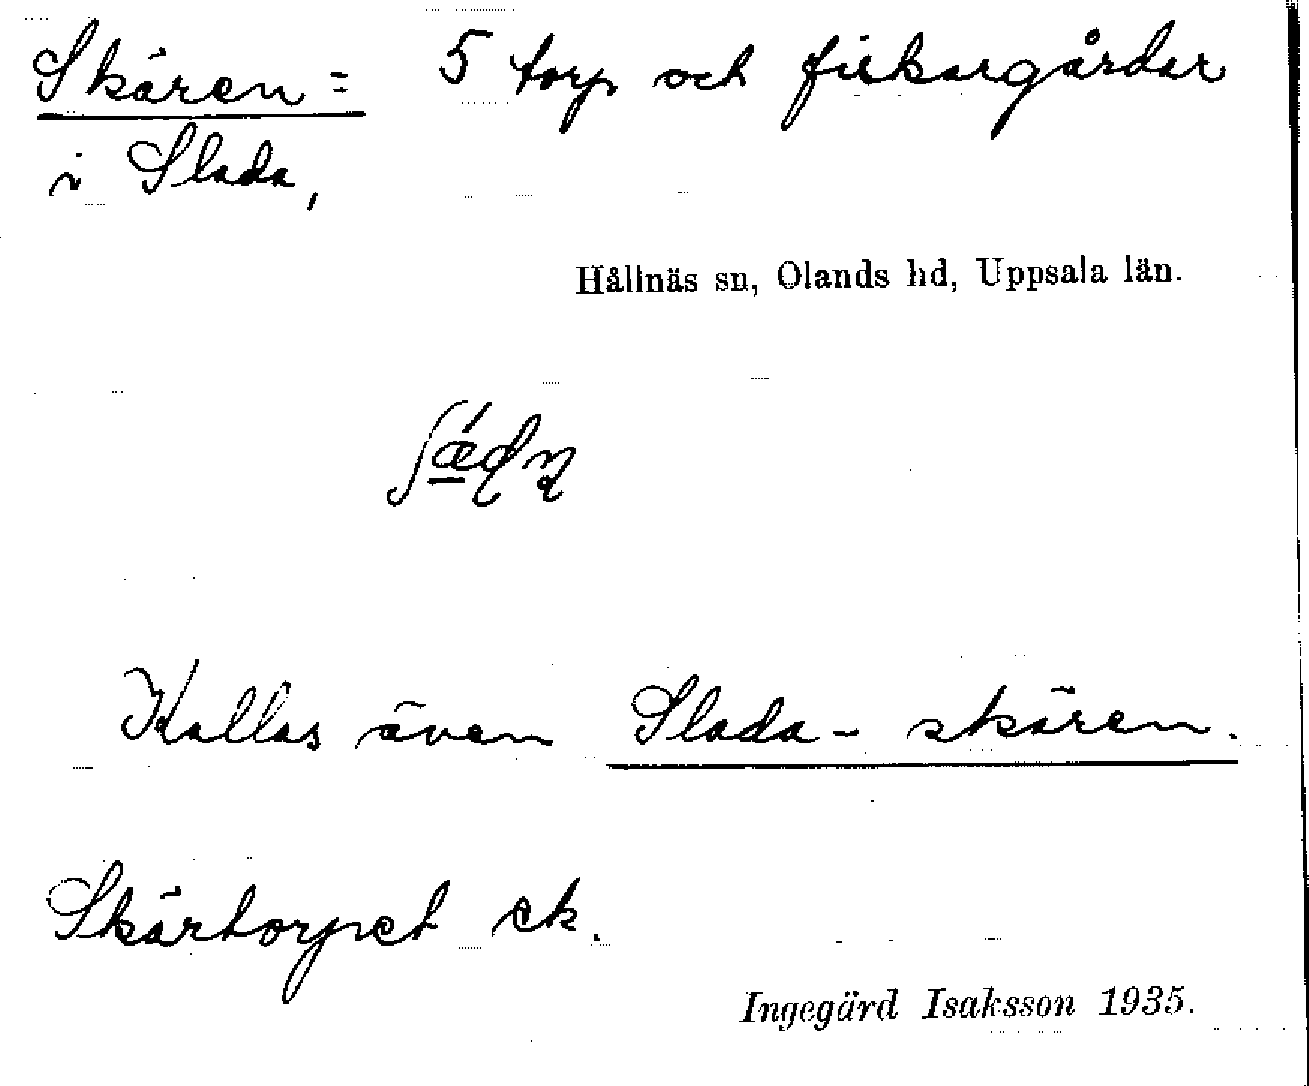 Skären = 5 torp och fiskargårdar
i Slada,
Hållnäs sn, Olands hd, Uppsala län.
Kallas även Slada - skären.
Skärtorpet ek.
Ingegärd Isaksson 1935.